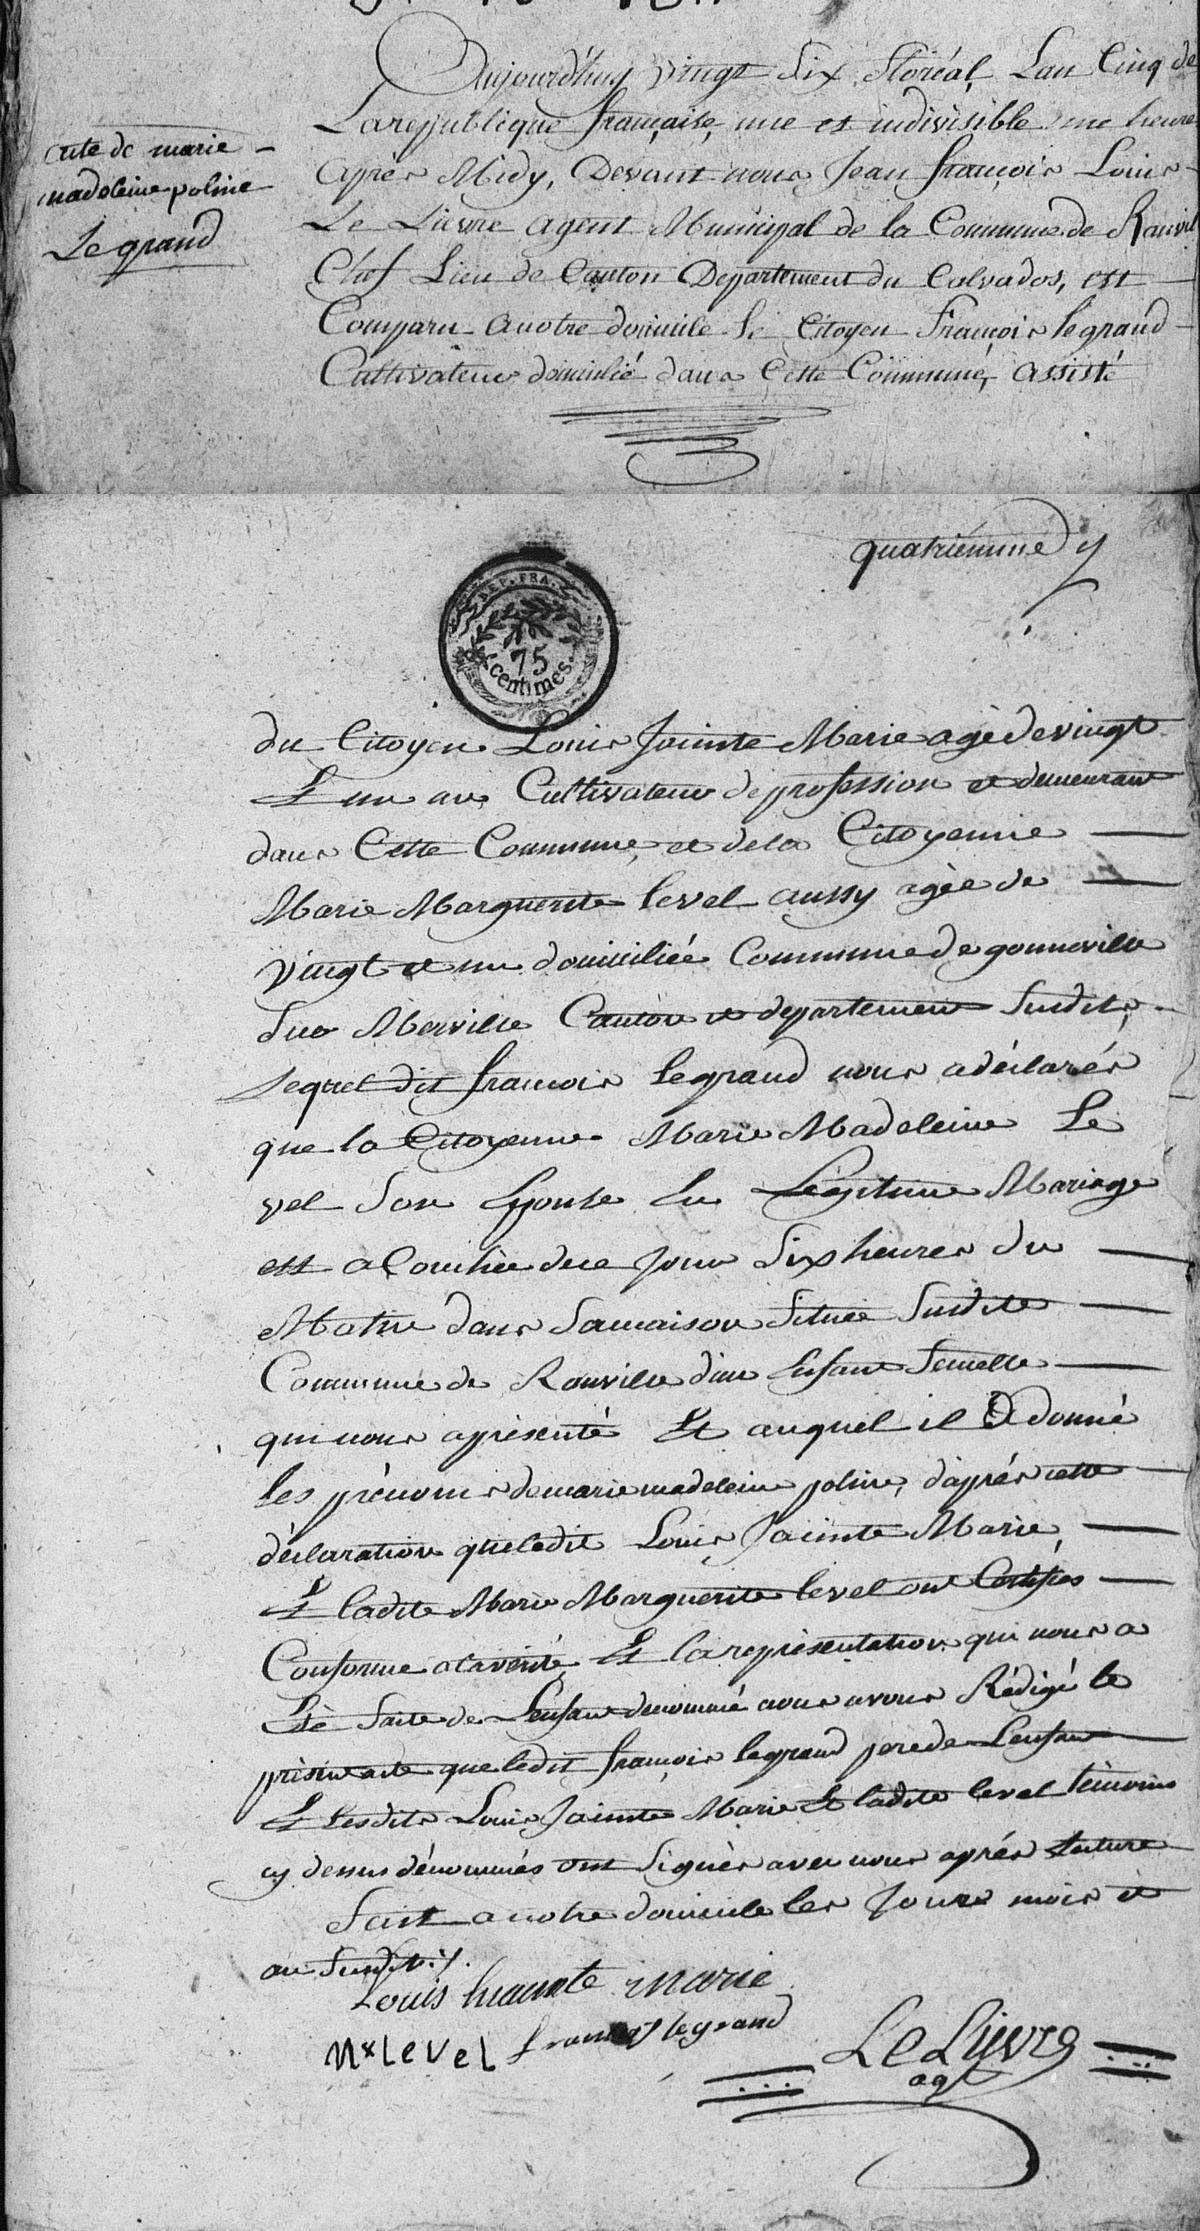 acte de marie
madeleine poline
Le grand
Aujourd'huy vingt six floréal Lan Cinq de
Larepublique française, une et indivisible une heure
après Midy, Devant nous Jean françois Louis
Le Lievre agent Municipal de la Commune de Ranvil
Chef Lieu de Canton Departement du Calvados, est
Comparu anotre domicile le Citoyen François legrand
Cultivateur domicilié dans Cette Commune, assisté
quatriémme
REP. FRA.
75
centimes.
du Citoyen Louis Jacinte Marie agé de vingt
Et un an Cultivateur de profession et demeurant
dans Cette Commune, et dela Citoyenne
Marie Marguerite level aussy agée de
vingt et un domiciliée Commune de gonneville
sur Merville Canton et departement susdits,
lequel dit francois legrand nous adéclarés
que la Citoyenne Marie Madeleine Le
vel Son Epouse En Legitime Mariage
est aCouchée dece Jour Six heures du
Matin dans Samaison Située Susdite
Commune de Ranville d'un Enfant femelle
qui nous apresenté Et auquel il A donné
les prénoms demarie madeleine poline, d'après cette
déclaration queledit Louis Jacinte Marie
Et ladite Marie Marguerite level ont Certifiés
Conforme alavérité Et lareprésentation qui nous a
Eté faite de Lenfant denommé nous avons Rédigé le
présent acte que ledit françois legrand pere de Lenfant
Et lesdits Louis Jacinte Marie Et ladite level témoins
cy dessus dénommés ont Signés avec nous après lecture
Fait anotre domicile les Jours mois et
an Susdits
Louis hiacinte marie
Mx Level francois legrand
Le Lievre
agt